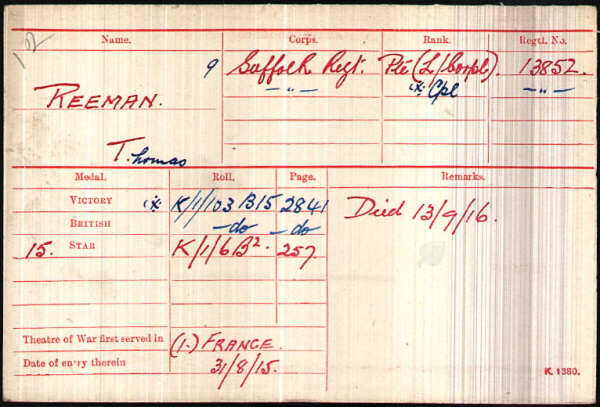 102
Name. Corps. Rank. Regtl. No.
9 Suffolk Regt. Pte (L/Corpl). 13852.
REEMAN. —"— ※ Cpl —"—
Thomas
Medal. Roll. Page. Remarks.
VICTORY ※ K/1/103 B15 2841 Died 13/9/16.
BRITISH —do —do
15. STAR K/1/6B². 257
Theatre of War first served in (1.) FRANCE.
Date of entry therein 31/8/15.
K. 1380.